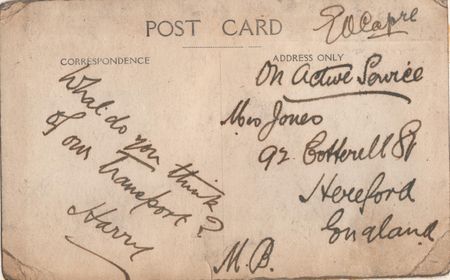 POST CARD
CORRESPONDENCE
What do you think
of our Transport?
Harry
ADDRESS ONLY
On Active Service
Mrs Jones
92 Cotterell St
Hereford
England
M.B.